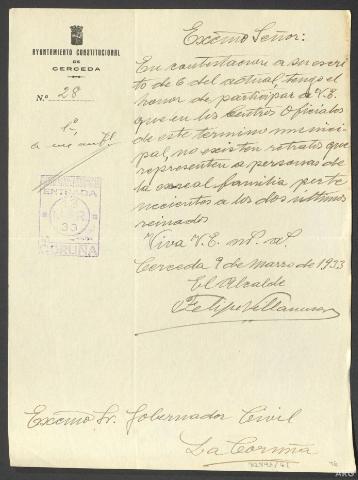 AYUNTAMIENTO CONSTITUCIONAL
DE
CERCEDA
N.º 28
Excmo Señor:
En contestacion a su escri
to de 6 del actual, tengo el
honor de participar a V.E.
que en los Centros Oficiales
de este termino munici
pal, no existen retratos que
representen a personas de
la exreal familia perte
necientes a los dos ultimos
reinados
Viva V.E. m.s. a.s.
Cerceda 9 de Marzo de 1933
El Alcalde
Felipe Villanueva
ENTRADA
MAR
33
CORUÑA
Excmo Sr. Gobernador Civil
La Coruña